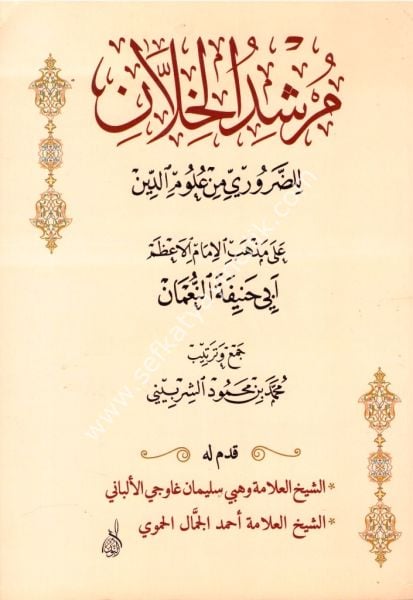 مُرْشِدُ الخِلَّانِ
لِلضَّرُورِيِّ مِنْ عُلُومِ الدِّينِ
عَلَى مَذْهَبِ الإِمَامِ الأَعْظَمِ
أَبِي حَنِيفَةَ النُّعْمَان
جَمْعُ وَتَرْتِيبُ
مُحَمَّد بْن مَحْمُود الشِّرْبِينِي
قدم له
* الشيخ العلامة وهبي سليمان غاوجي الألباني
* الشيخ العلامة أحمد الجمال الحموي